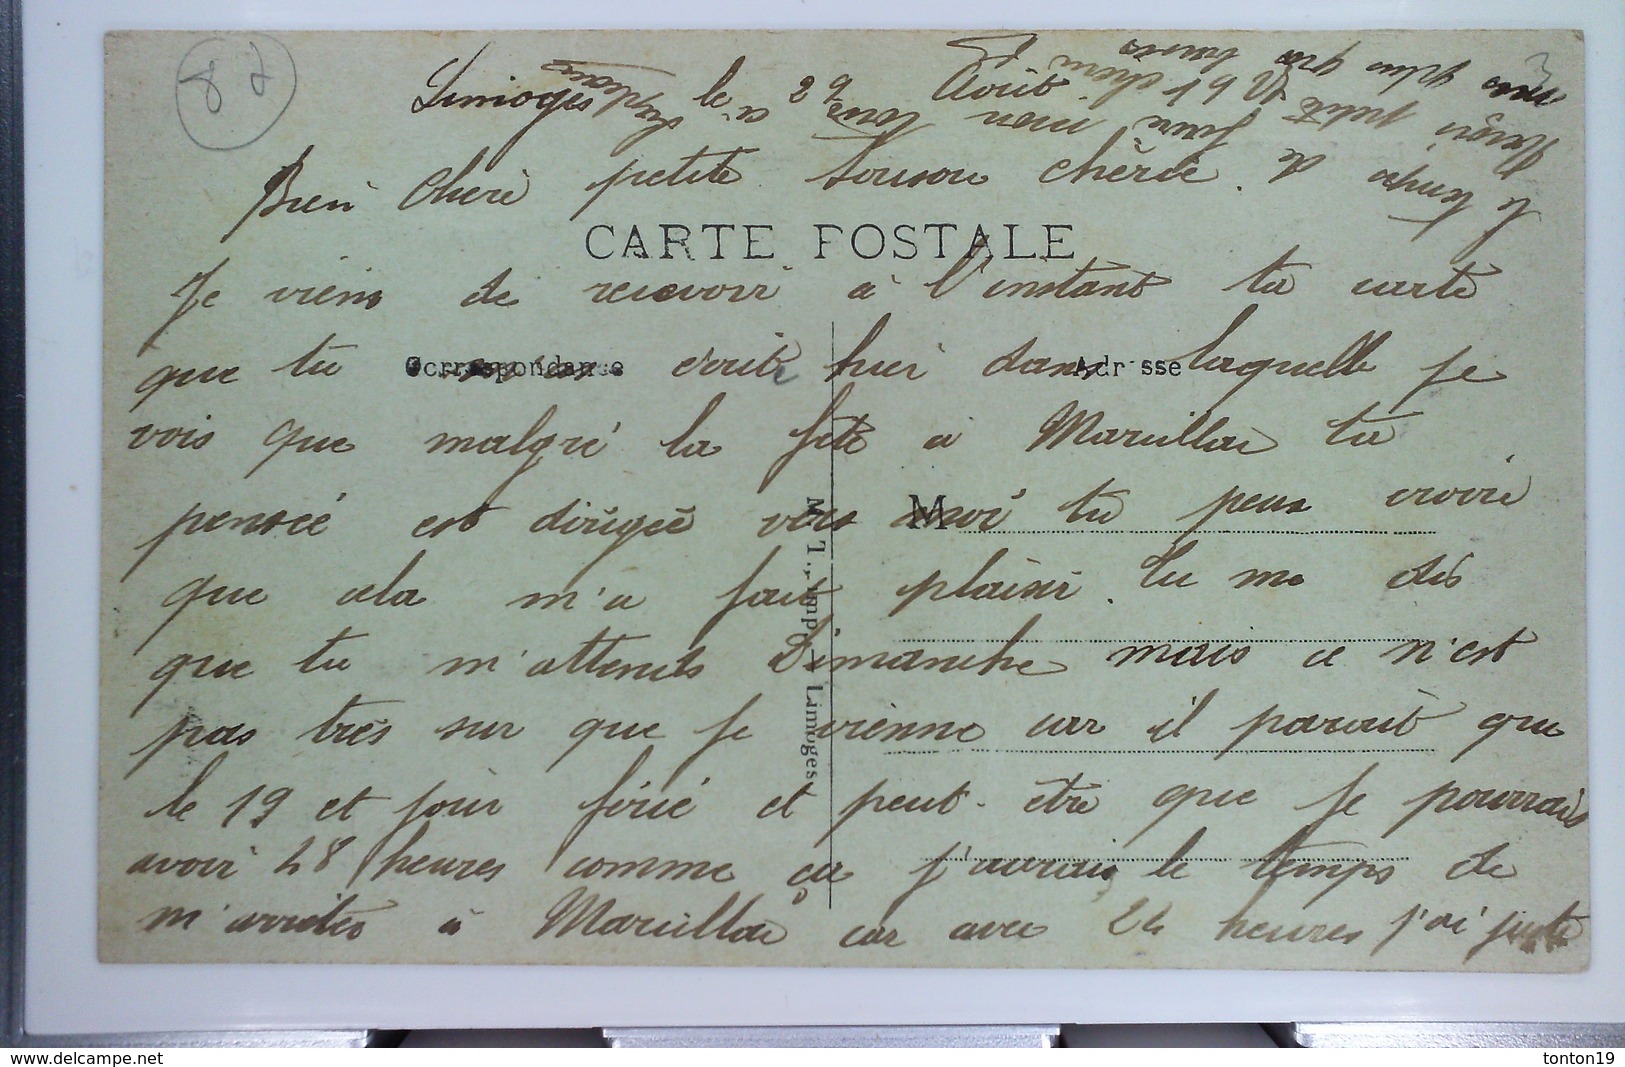 87
Limoges le 29 Août 19
Bien Cheri petite Louson chérie.
CARTE POSTALE
Je viens de recevoir a l'instant ta carte
que tu écrite hier dans laquelle je
Correspondance Adresse
vois que malgré la fete a Marcillac tu
pensée est dirigée vers moi tu peux croire
M
que cela m'a fait plaisir. tu me dis
que tu m'attends Dimanche mais ce n'est
pas très sur que je vienne car il parait que
le 19 et jour férié et peut-etre que je pourrais
avoir 48 heures comme ça j'aurais le temps de
m'arrêter à Marcillac car avec 24 heures j'ai juste
le temps de faire
mon
petite
mes plus gros
M. T., Imp. - Limoges
www.delcampe.net
tonton19